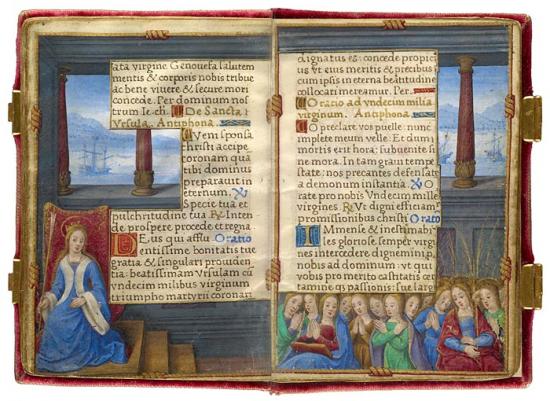 ata virgine Genouefa salutem
mentis & corporis nobis tribue
ac bene viuere & secure mori
concede. Per dominum nos
trum Ie. ch. De Sancta
Vrsula. Antiphona.
Veni sponsa
christi accipe
coronam quā
tibi dominus
preparauit in
eternum. ℣
Specie tua et
pulchritudine tua ℟ Inten
de prospere procede et regna
Deus qui afflu Oratio
entissime bonitatis tue
gratia & singulari prouiden
tia: beatissimam Vrsulam cū
vndecim milibus virginum
triumpho martyrii coronari
dignatus es: concede propici
us vt eius meritis & precibus
cum ipsis in eterna beatitudine
collocari mereamur. Per
Oratio ad vndecim milia
virginum. Antiphona.
O preclare vos puelle: nunc
implete meum velle: Et dum
mortis erit hora: subuenite si
ne mora. In tam graui tempe
state: nos precantes defensate
a demonum instantia. ℣ O
rate pro nobis Vndecim mille
virgines. ℟ Vt digni efficiam
promissionibus christi Oratio
Immense & inestimabi
les gloriose semper virgi
nes intercedere dignemini p
nobis ad dominum: vt qui
vobis pro merito castitatis cer
tamine qz passionis: sue larg